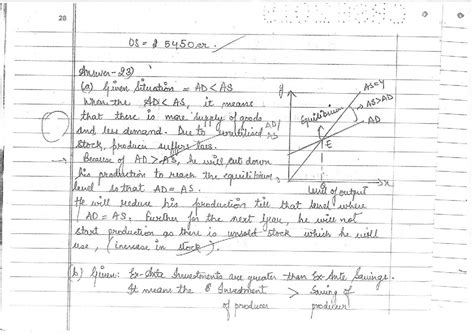 28
OS = 25450 cr.
Answer-23)
(a) Given Situation = AD < AS
When the AD < AS, it means
that there is more supply of goods
and less demand. Due to unutilised
stock, producer suffers loss.
Because of AD > AS, he will cut down
his production to reach the equilibrium
level so that AD = AS.
y
AS=Y
AS>AD
AD
Equilibrium
AD/
AS
E
x
level of output
He will reduce his production till that level where
AD = AS. Further for the next year, he will not
start production as there is unsold stock which he will
use, (increase in stock).
(b) Given: Ex-Ante Investments are greater than Ex-Ante Savings.
It means the Investment > Saving of
of producer producer